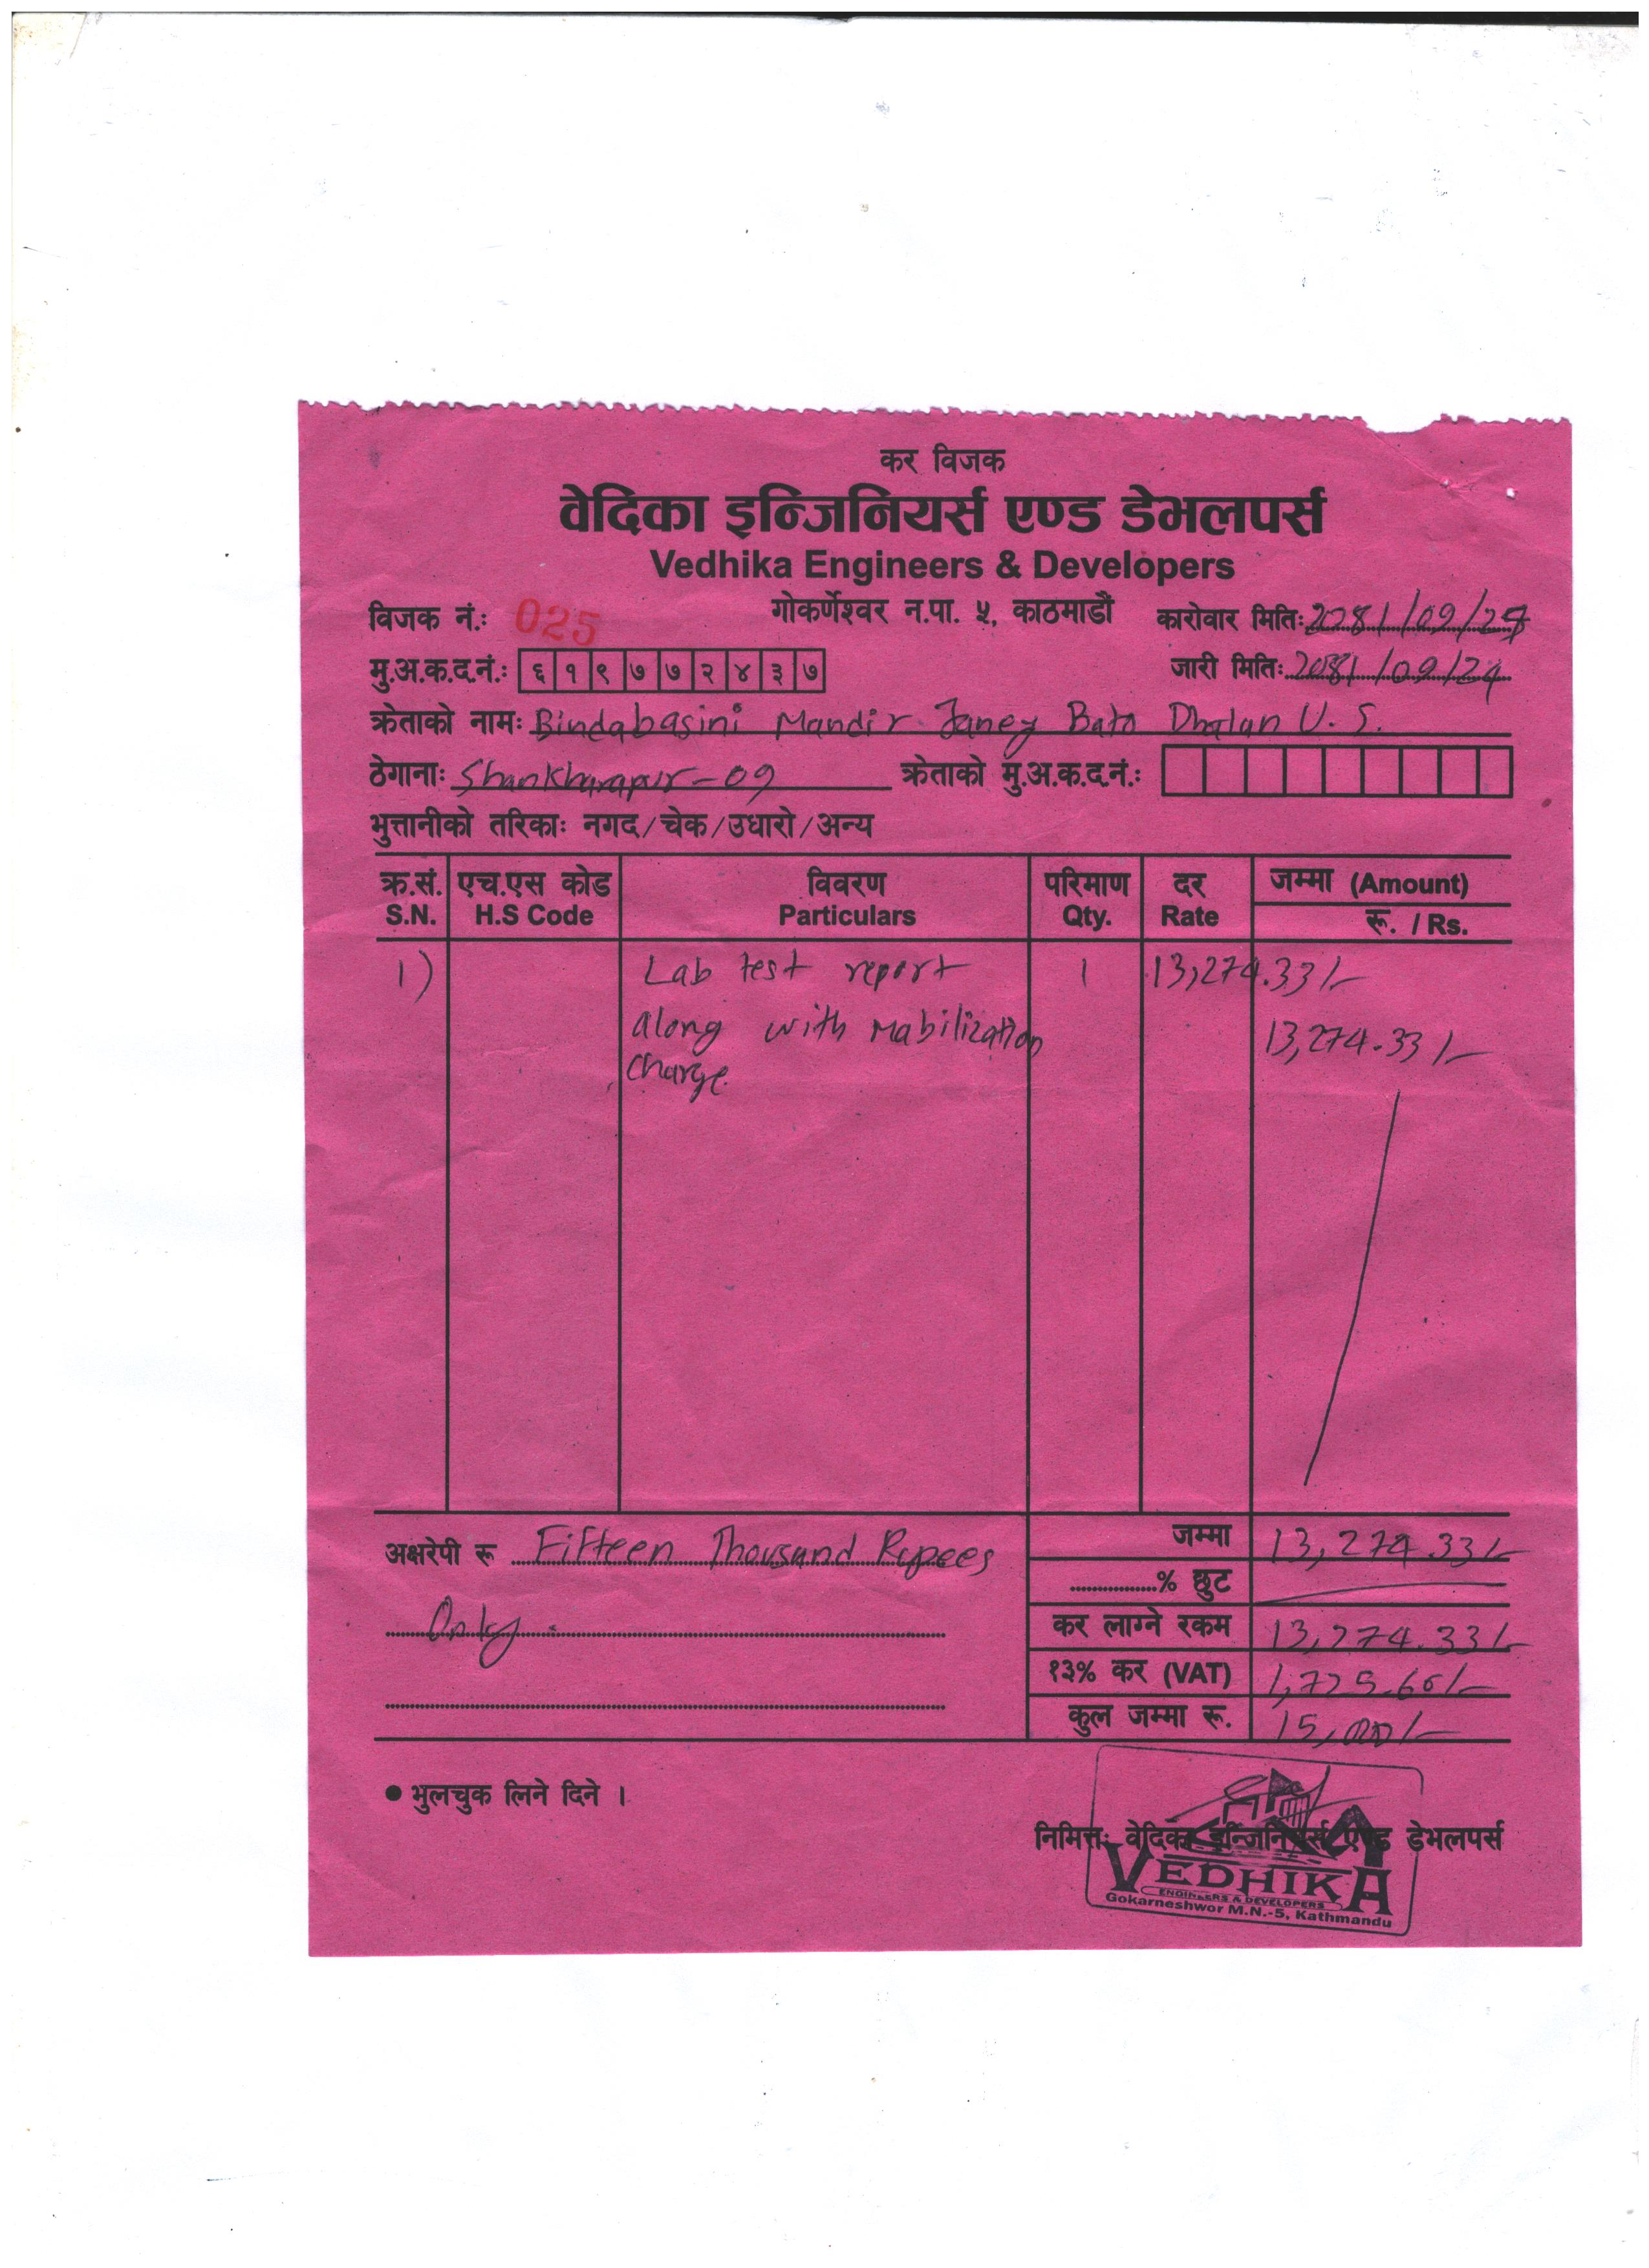 कर विजक
वेदिका इन्जिनियर्स एण्ड डेभलपर्स
Vedhika Engineers & Developers
विजक नं.: 025 गोकर्णेश्वर न.पा. ५, काठमाडौं कारोवार मिति: 2081/09/24
मु.अ.क.द.नं.: ६१९७७२४३७ जारी मिति: 2081/09/24
क्रेताको नाम: Bindabasini Mandir Janey Bato Dhalan U.S.
ठेगाना: Shankharapur-09 क्रेताको मु.अ.क.द.नं.:
भुत्तानीको तरिका: नगद/चेक/उधारो/अन्य
क्र.सं. एच.एस कोड विवरण परिमाण दर जम्मा (Amount)
S.N. H.S Code Particulars Qty. Rate रू. / Rs.
1) Lab test report 1 13,274.33/-
along with Mabilization 13,274.33/-
charge.
अक्षरेपी रू Fifteen Thousand Rupees जम्मा 13,274.33/-
% छुट
Only. कर लाग्ने रकम 13,274.33/-
१३% कर (VAT) 1,725.66/-
कुल जम्मा रू. 15,000/-
● भुलचुक लिने दिने ।
निमित्त: वेदिका इन्जिनियर्स एण्ड डेभलपर्स
VEDHIKA
ENGINEERS & DEVELOPERS
Gokarneshwor M.N.-5, Kathmandu